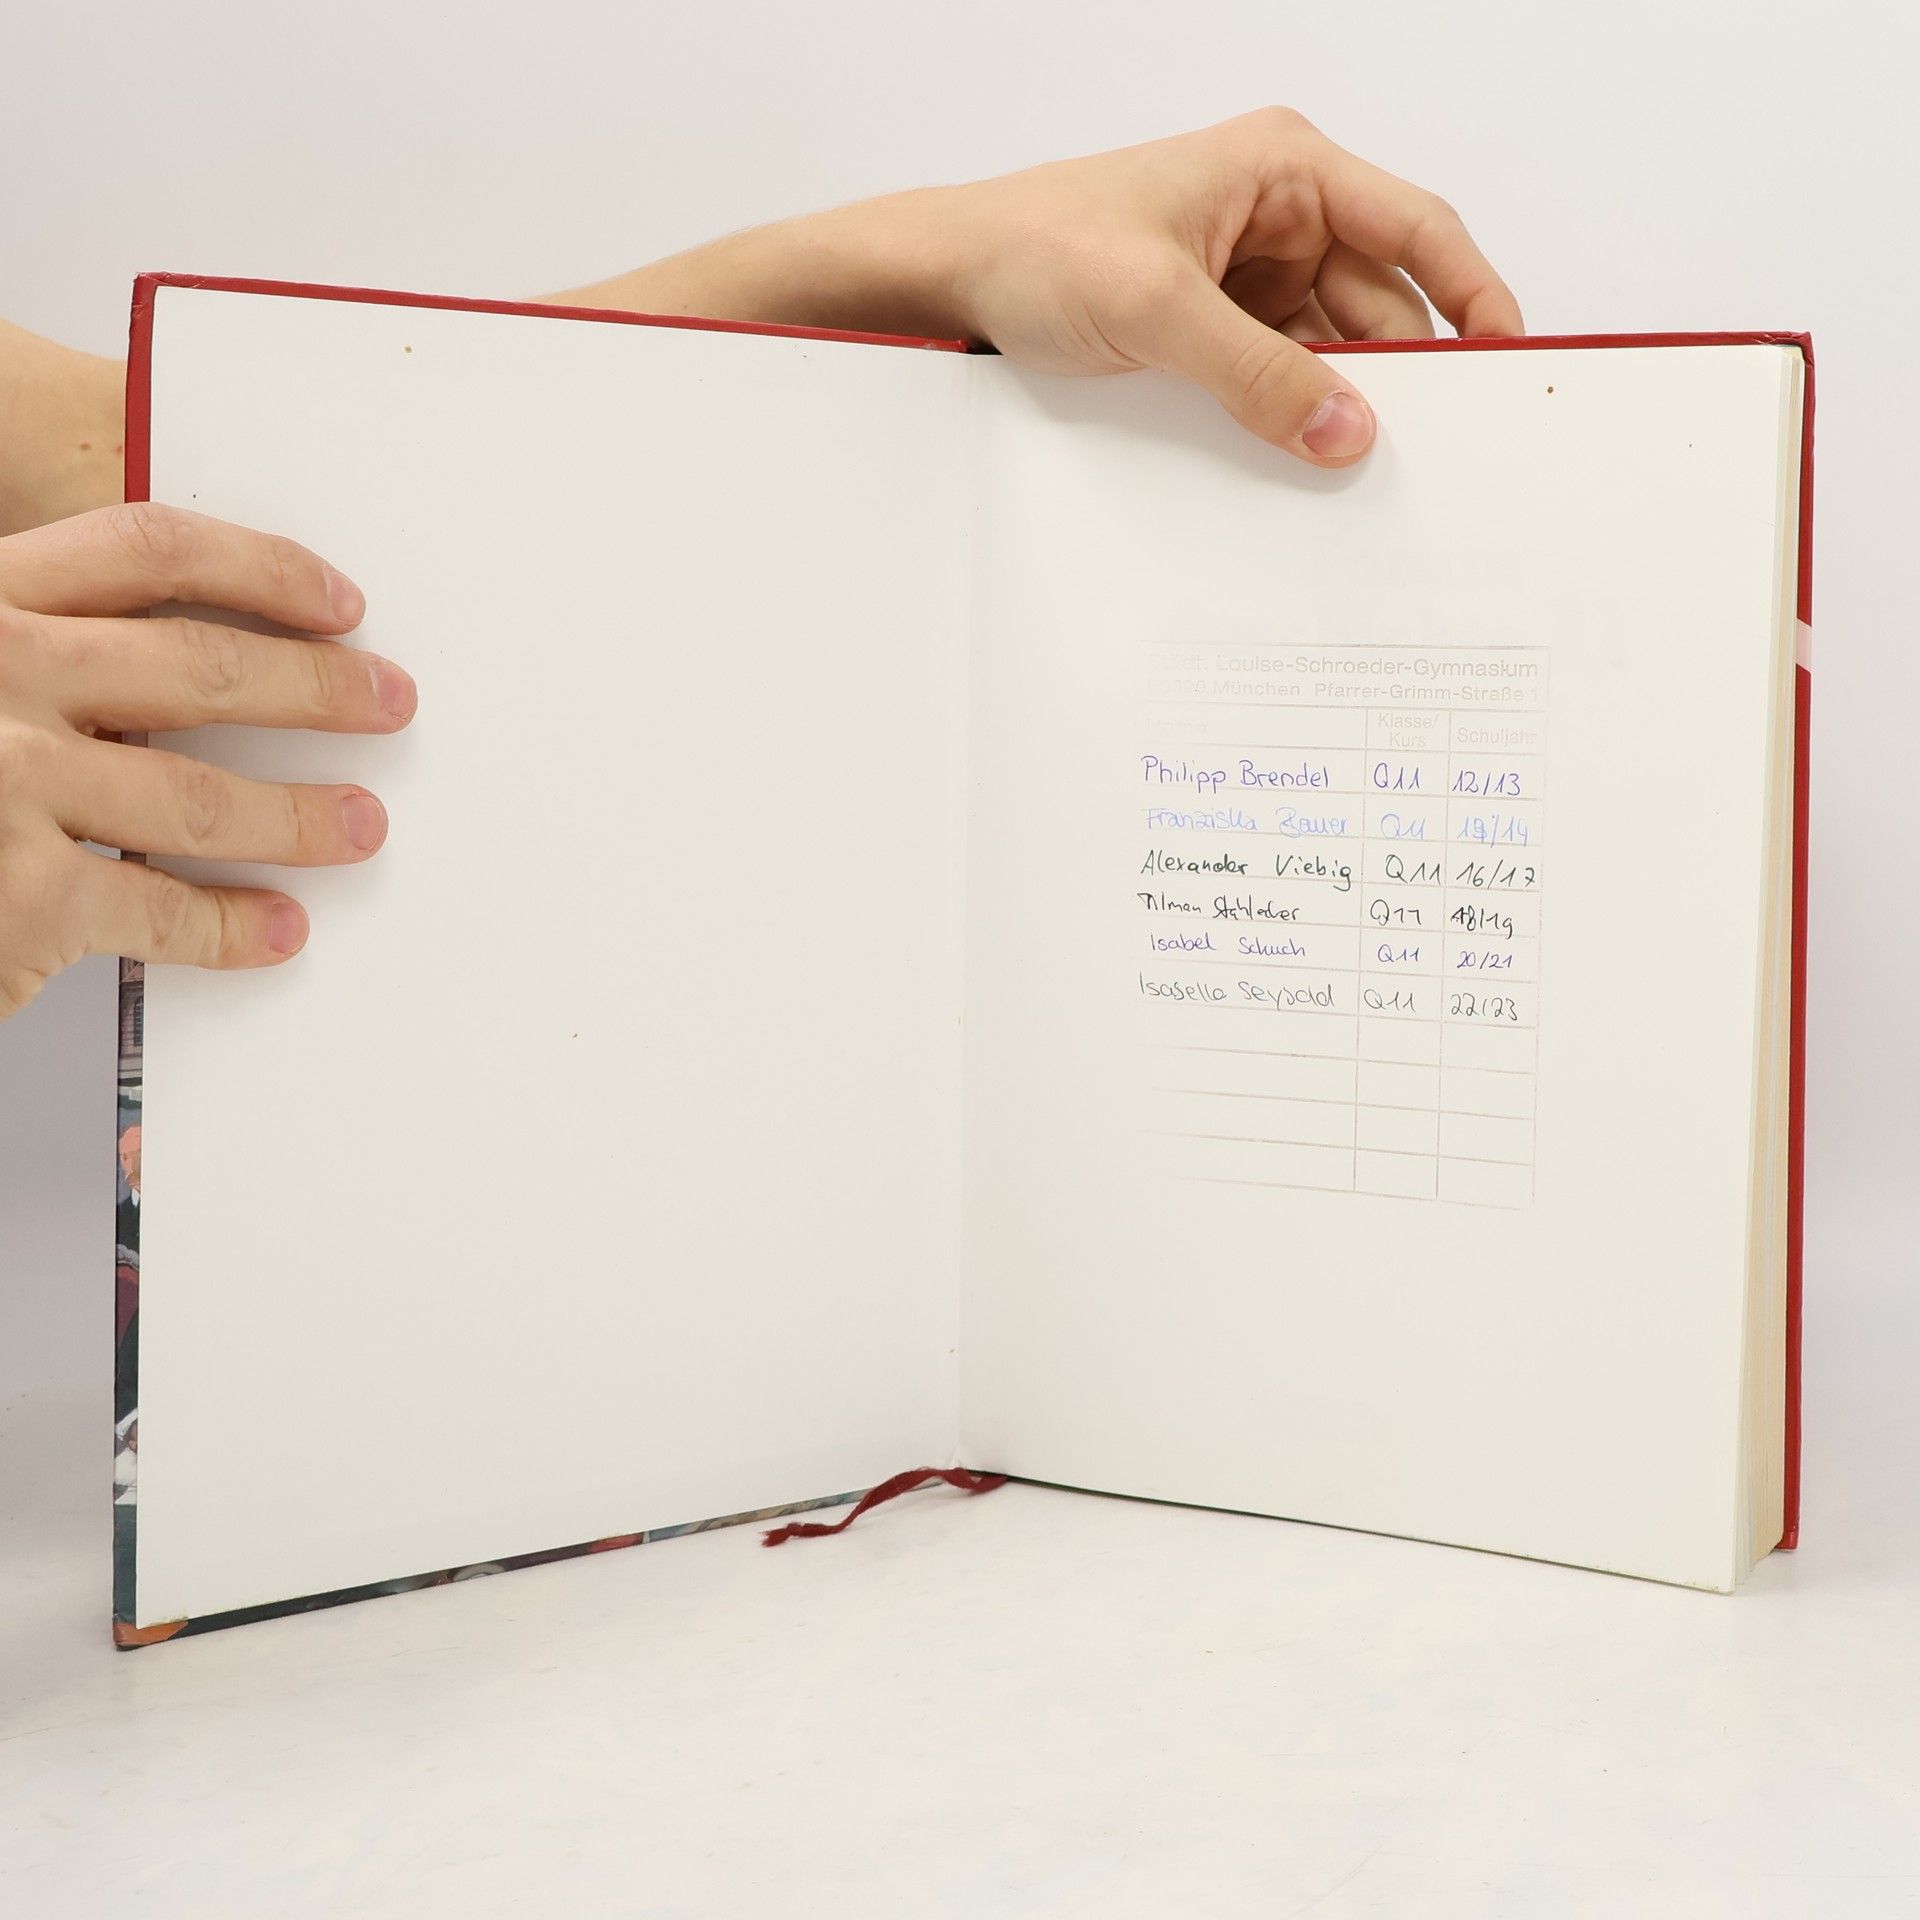 Städt. Louise-Schroeder-Gymnasium
München Pfarrer-Grimm-Straße 1
Name Klasse/Kurs Schuljahr
Philipp Brendel Q11 12/13
Franziska Bauer Q11 13/14
Alexander Viebig Q11 16/17
Tilman Q11 18/19
Isabel Schuch Q11 20/21
Isabella Q11 22/23